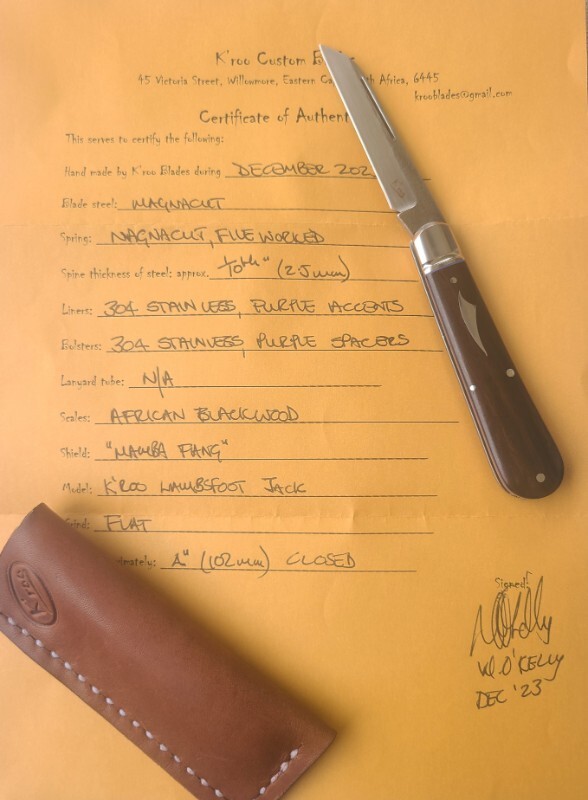 K'roo Custom
45 Victoria Street, Willowmore, Eastern Africa, 6445
krooblades@gmail.com
Certificate of Authent
This serves to certify the following:
Hand made by K'roo Blades during DECEMBER 202
Blade steel: MAGNACUT
Spring: MAGNACUT, FILE WORKED
Spine thickness of steel: approx. (2.5mm)
Liners: 304 STAINLESS, PURPLE ACCENTS
Bolsters: 304 STAINLESS, PURPLE SPACERS
Lanyard tube: N/A
Scales: AFRICAN BLACKWOOD
Shield: "MAMBA FANG"
Model: K'ROO LAMBSFOOT JACK
Grind: FLAT
imately: 4" (102mm) CLOSED
K'roo
Signed:
O'KELLY
DEC '23